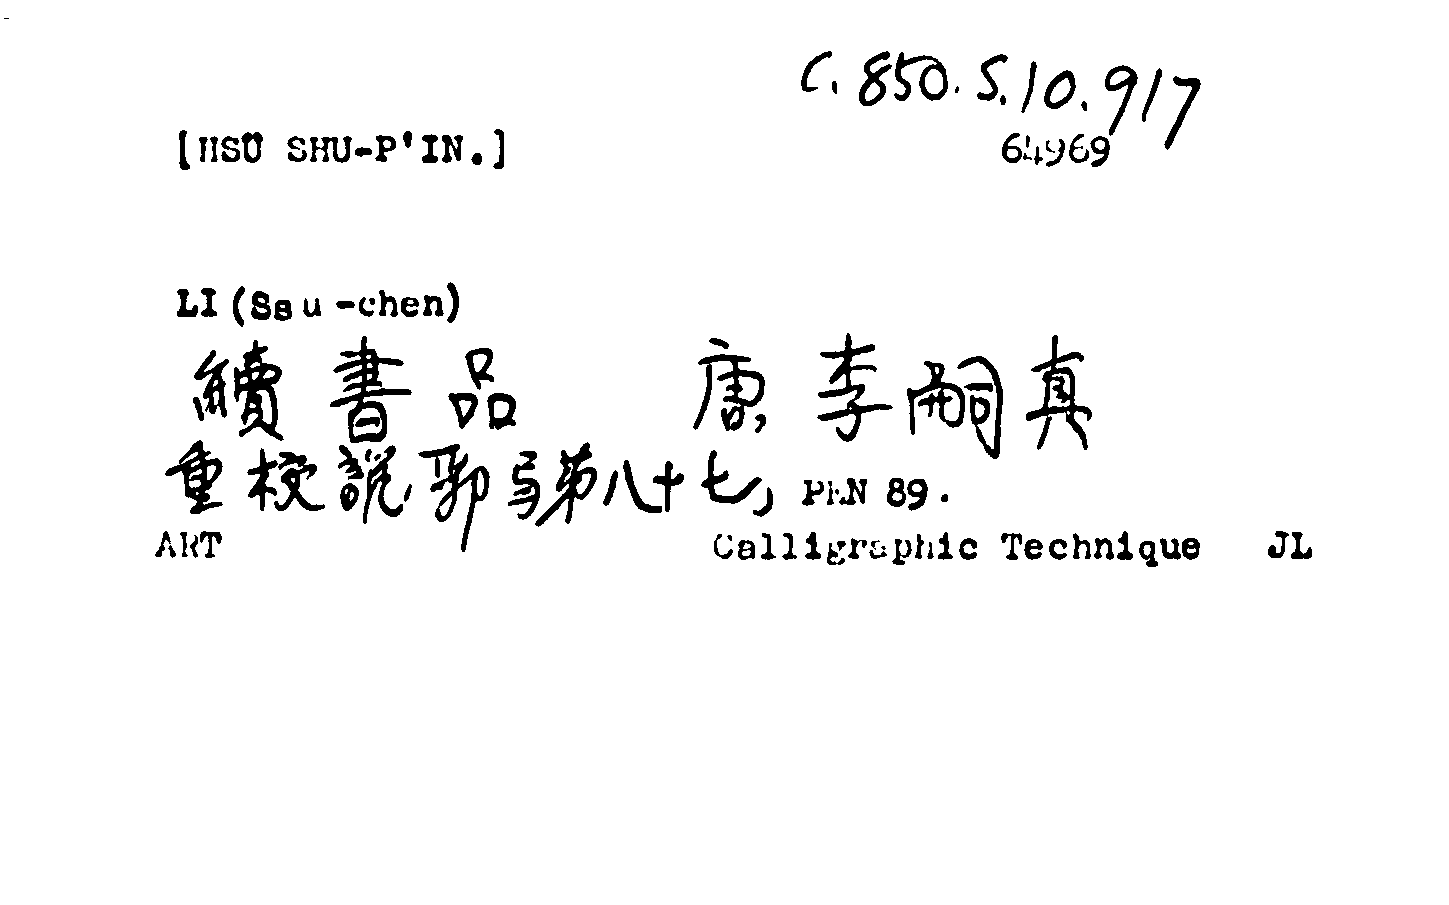 C.850.S.10.917
[HSÜ SHU-P'IN.] 64969
LI (Ssu-chen)
續書品 唐 李嗣真
重校說郛弓第八十七, PEN 89.
ART Calligraphic Technique JL